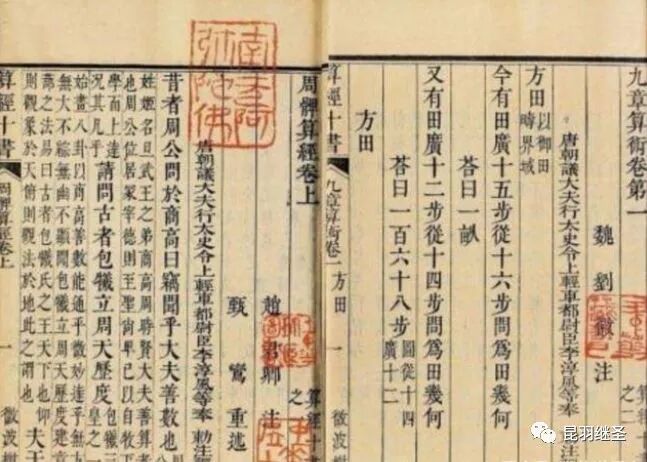 九章算術卷第一
魏劉徽注
唐朝議大夫行太史令上輕車都尉臣李淳風等奉
方田以御田疇界域
今有田廣十五步從十六步問爲田幾何
荅曰一畝
又有田廣十二步從十四步問爲田幾何
荅曰一百六十八步圖從十四廣十二
方田
算經十書
九章算術卷一 方田
一
微波榭
算經十書之二
周髀算經卷上
算經十書之一
趙君卿注
甄鸞重述
唐朝議大夫行太史令上輕車都尉臣李淳風等奉 勅注釋
昔者周公問於商高曰竊聞乎大夫善數也
姓姬名旦武王之弟商高周時賢大夫善算者
也周公位居冢宰德則至聖尚卑己以自牧下
學而上達
況其凡乎
請問古者包犧立周天歷度
包犧三皇之一
始畫八卦以商高善數能通乎微妙達乎無
無大不綜無幽不顯聞包犧立周天歷度建章
蔀之法易曰古者包犧氏之王天下也仰
則觀象於天俯則觀法於地此之謂也
夫天
算經十書
周髀算經卷上
一
微波榭
南無阿彌陀佛
昆羽继圣